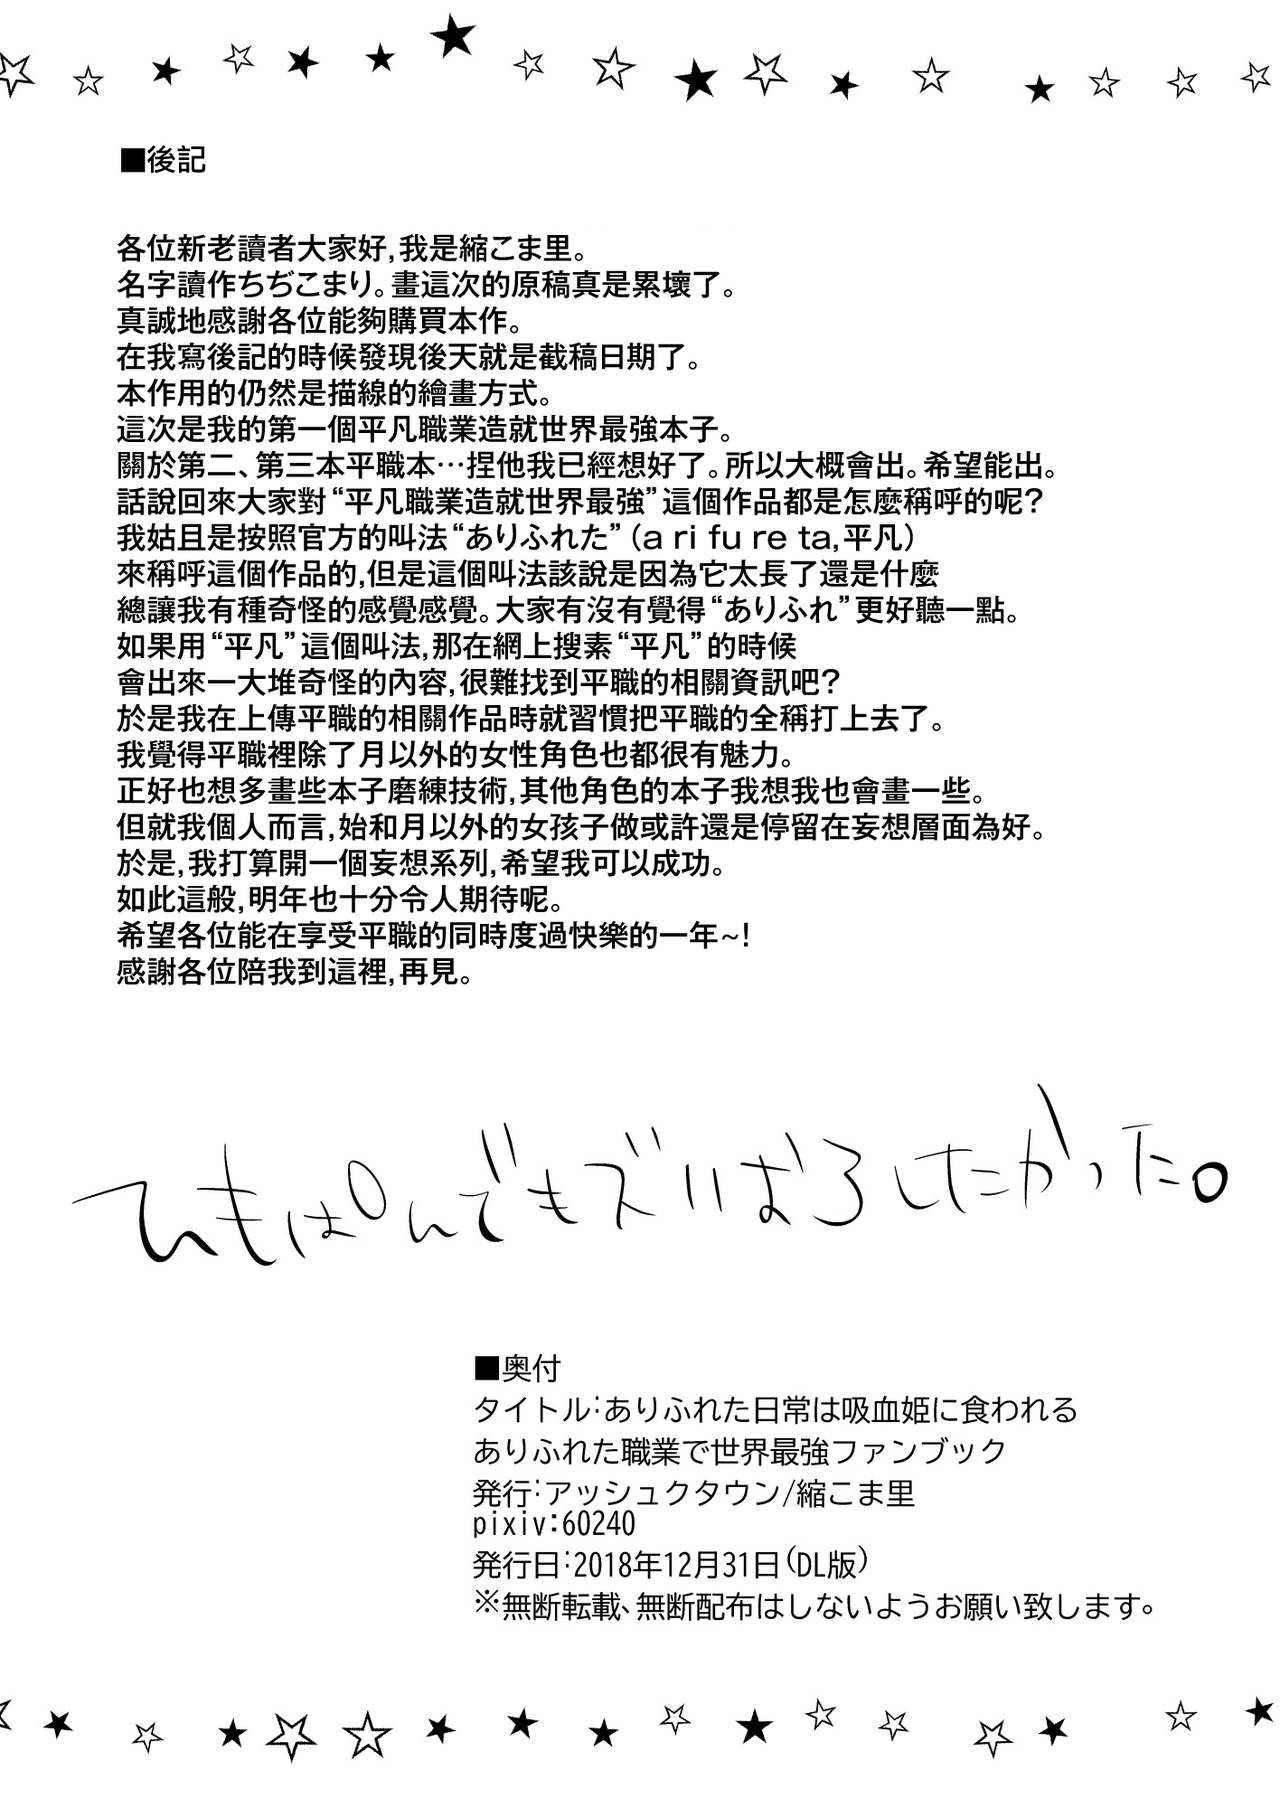 ■後記
各位新老讀者大家好,我是縮こま里。
名字讀作ちぢこまり。畫這次的原稿真是累壞了。
真誠地感謝各位能夠購買本作。
在我寫後記的時候發現後天就是截稿日期了。
本作用的仍然是描線的繪畫方式。
這次是我的第一個平凡職業造就世界最強本子。
關於第二、第三本平職本…捏他我已經想好了。所以大概會出。希望能出。
話說回來大家對“平凡職業造就世界最強”這個作品都是怎麼稱呼的呢?
我姑且是按照官方的叫法“ありふれた”(a ri fu re ta,平凡)
來稱呼這個作品的,但是這個叫法該說是因為它太長了還是什麼
總讓我有種奇怪的感覺感覺。大家有沒有覺得“ありふれ”更好聽一點。
如果用“平凡”這個叫法,那在網上搜素“平凡”的時候
會出來一大堆奇怪的內容,很難找到平職的相關資訊吧?
於是我在上傳平職的相關作品時就習慣把平職的全稱打上去了。
我覺得平職裡除了月以外的女性角色也都很有魅力。
正好也想多畫些本子磨練技術,其他角色的本子我想我也會畫一些。
但就我個人而言,始和月以外的女孩子做或許還是停留在妄想層面為好。
於是,我打算開一個妄想系列,希望我可以成功。
如此這般,明年也十分令人期待呢。
希望各位能在享受平職的同時度過快樂的一年~!
感謝各位陪我到這裡,再見。
ひもぱんでもズリおろしたかった。
■奥付
タイトル:ありふれた日常は吸血姫に食われる
ありふれた職業で世界最強ファンブック
発行:アッシュクタウン/縮こま里
pixiv:60240
発行日:2018年12月31日(DL版)
※無断転載、無断配布はしないようお願い致します。